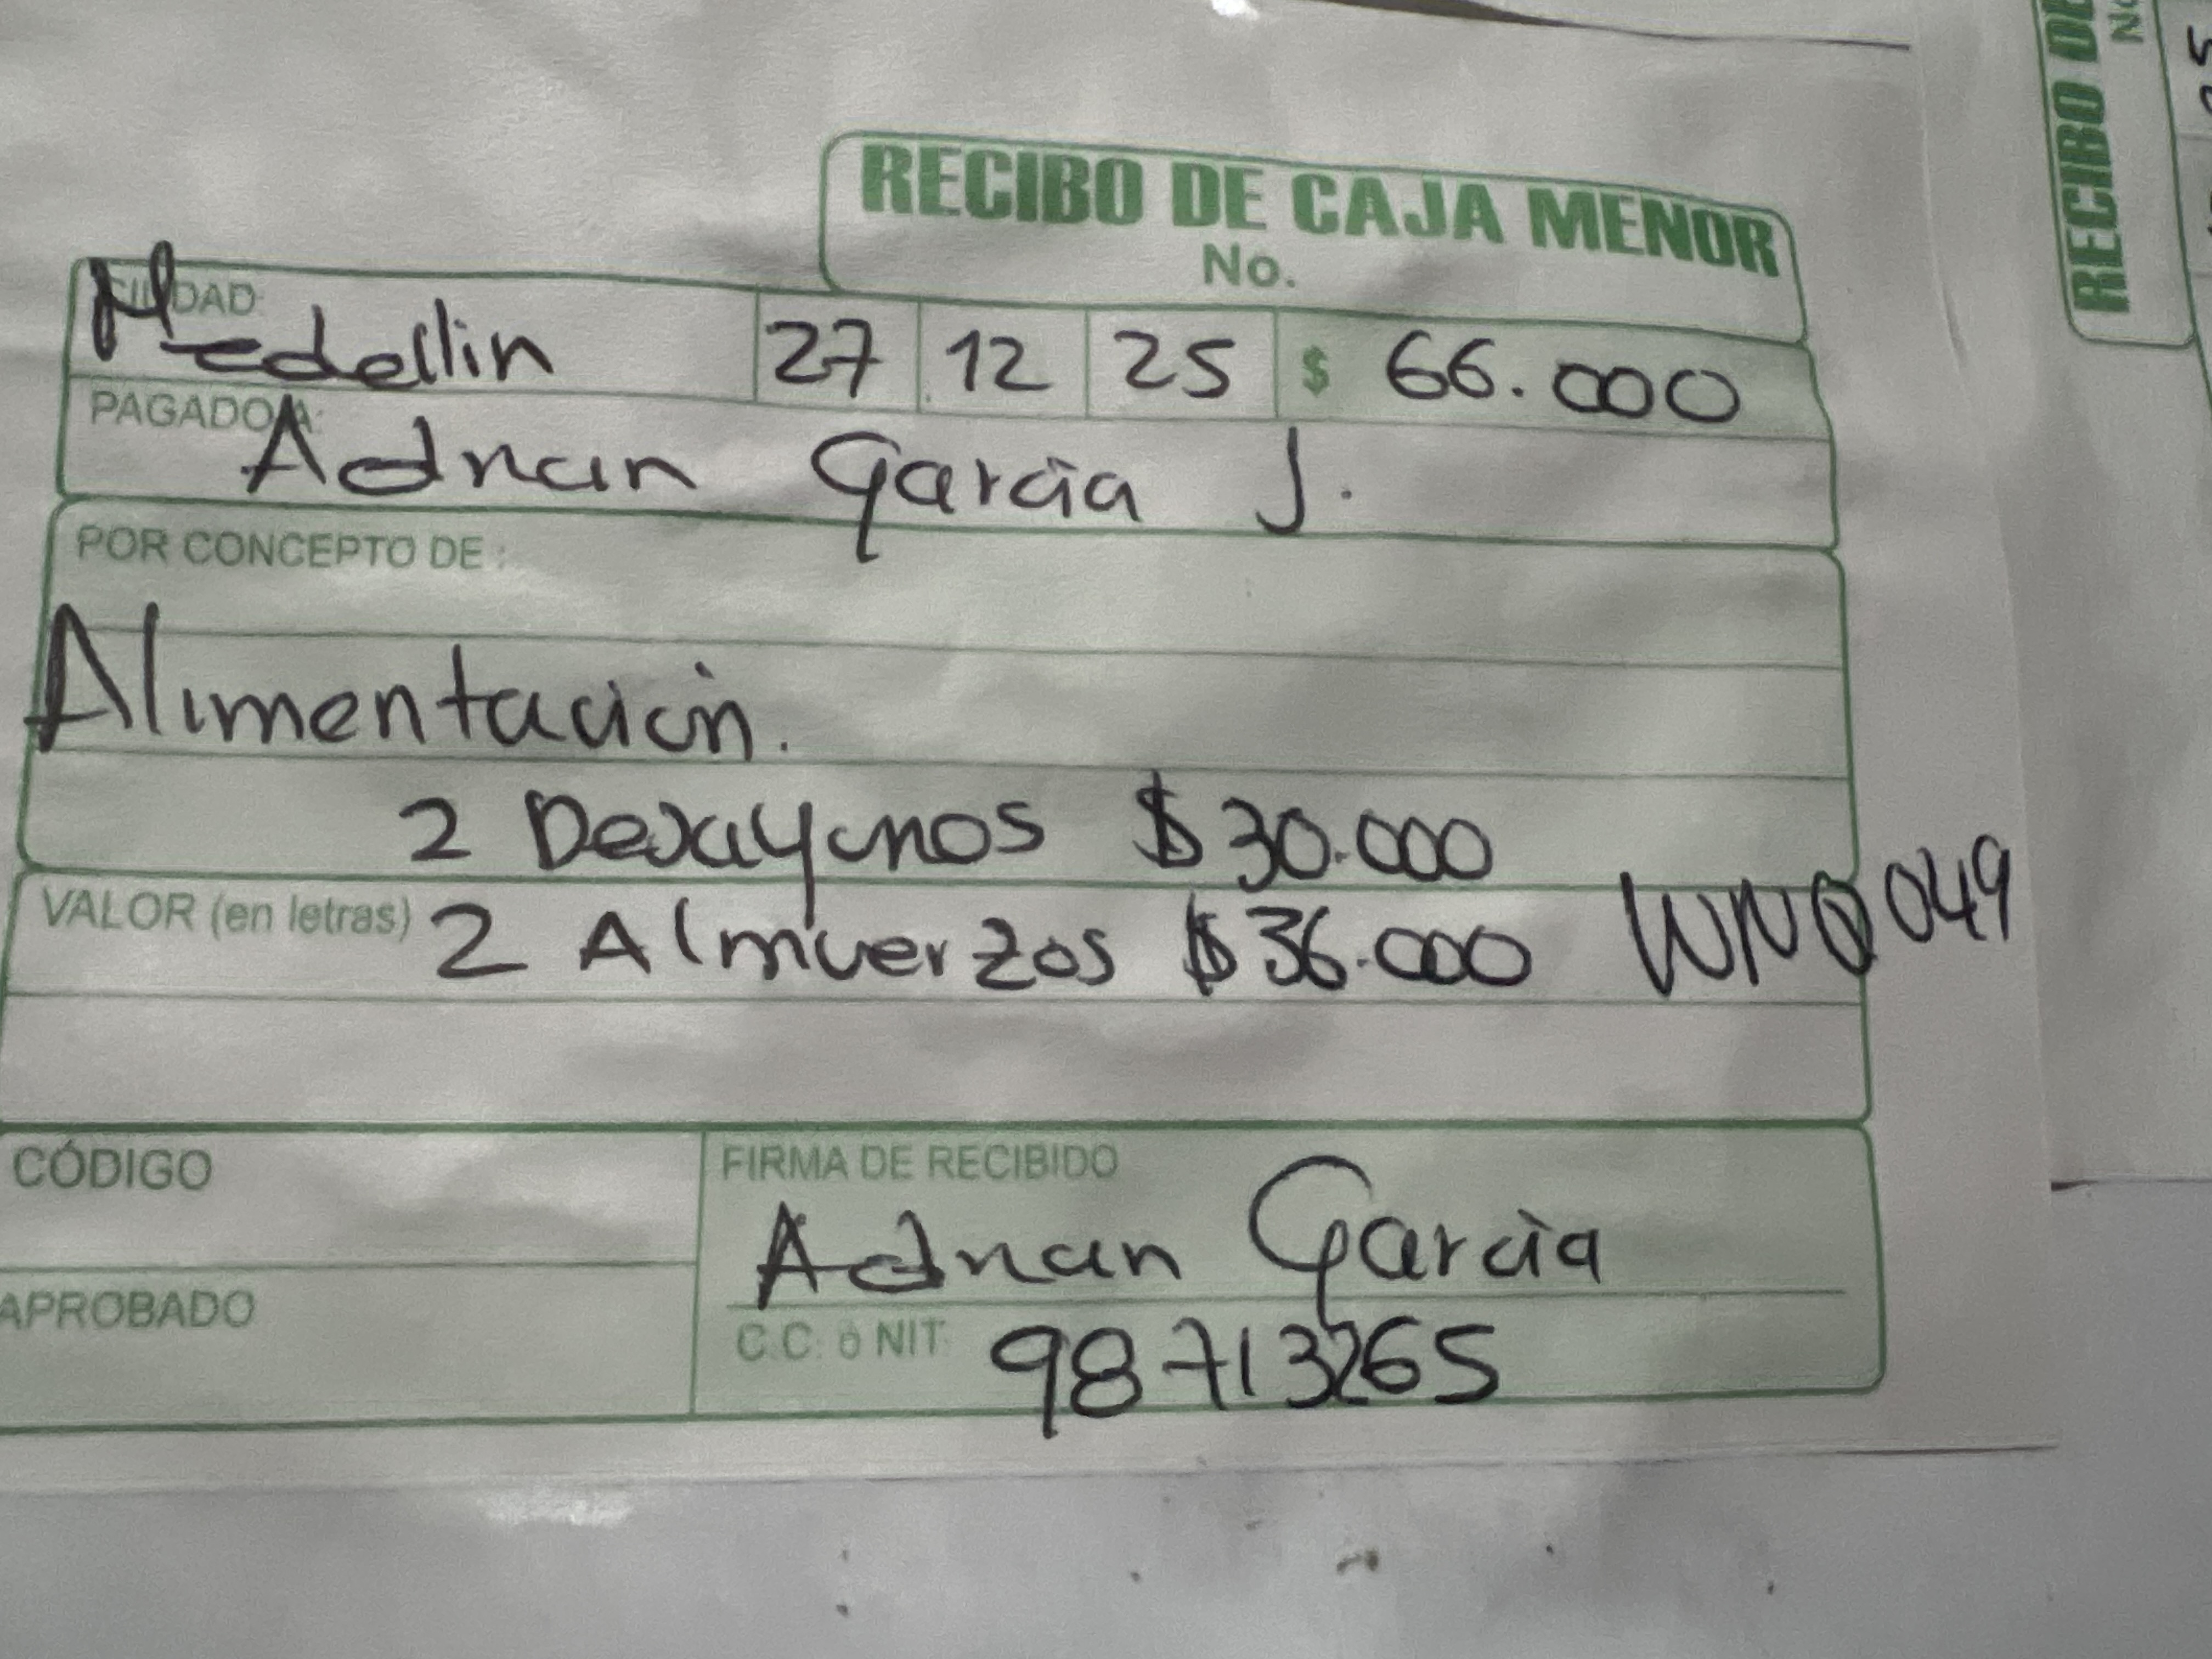 RECIBO DE CAJA MENOR
No.
CIUDAD: Medellin 27 12 25 $ 66.000
PAGADO A: Adrian Garcia J.
POR CONCEPTO DE :
Alimentación.
2 Desayunos $ 30.000
VALOR (en letras) 2 Almuerzos $ 36.000 WNQ049
CÓDIGO
FIRMA DE RECIBIDO
Adrian Garcia
APROBADO
C.C. ó NIT. 98713265
RECIBO DE
No